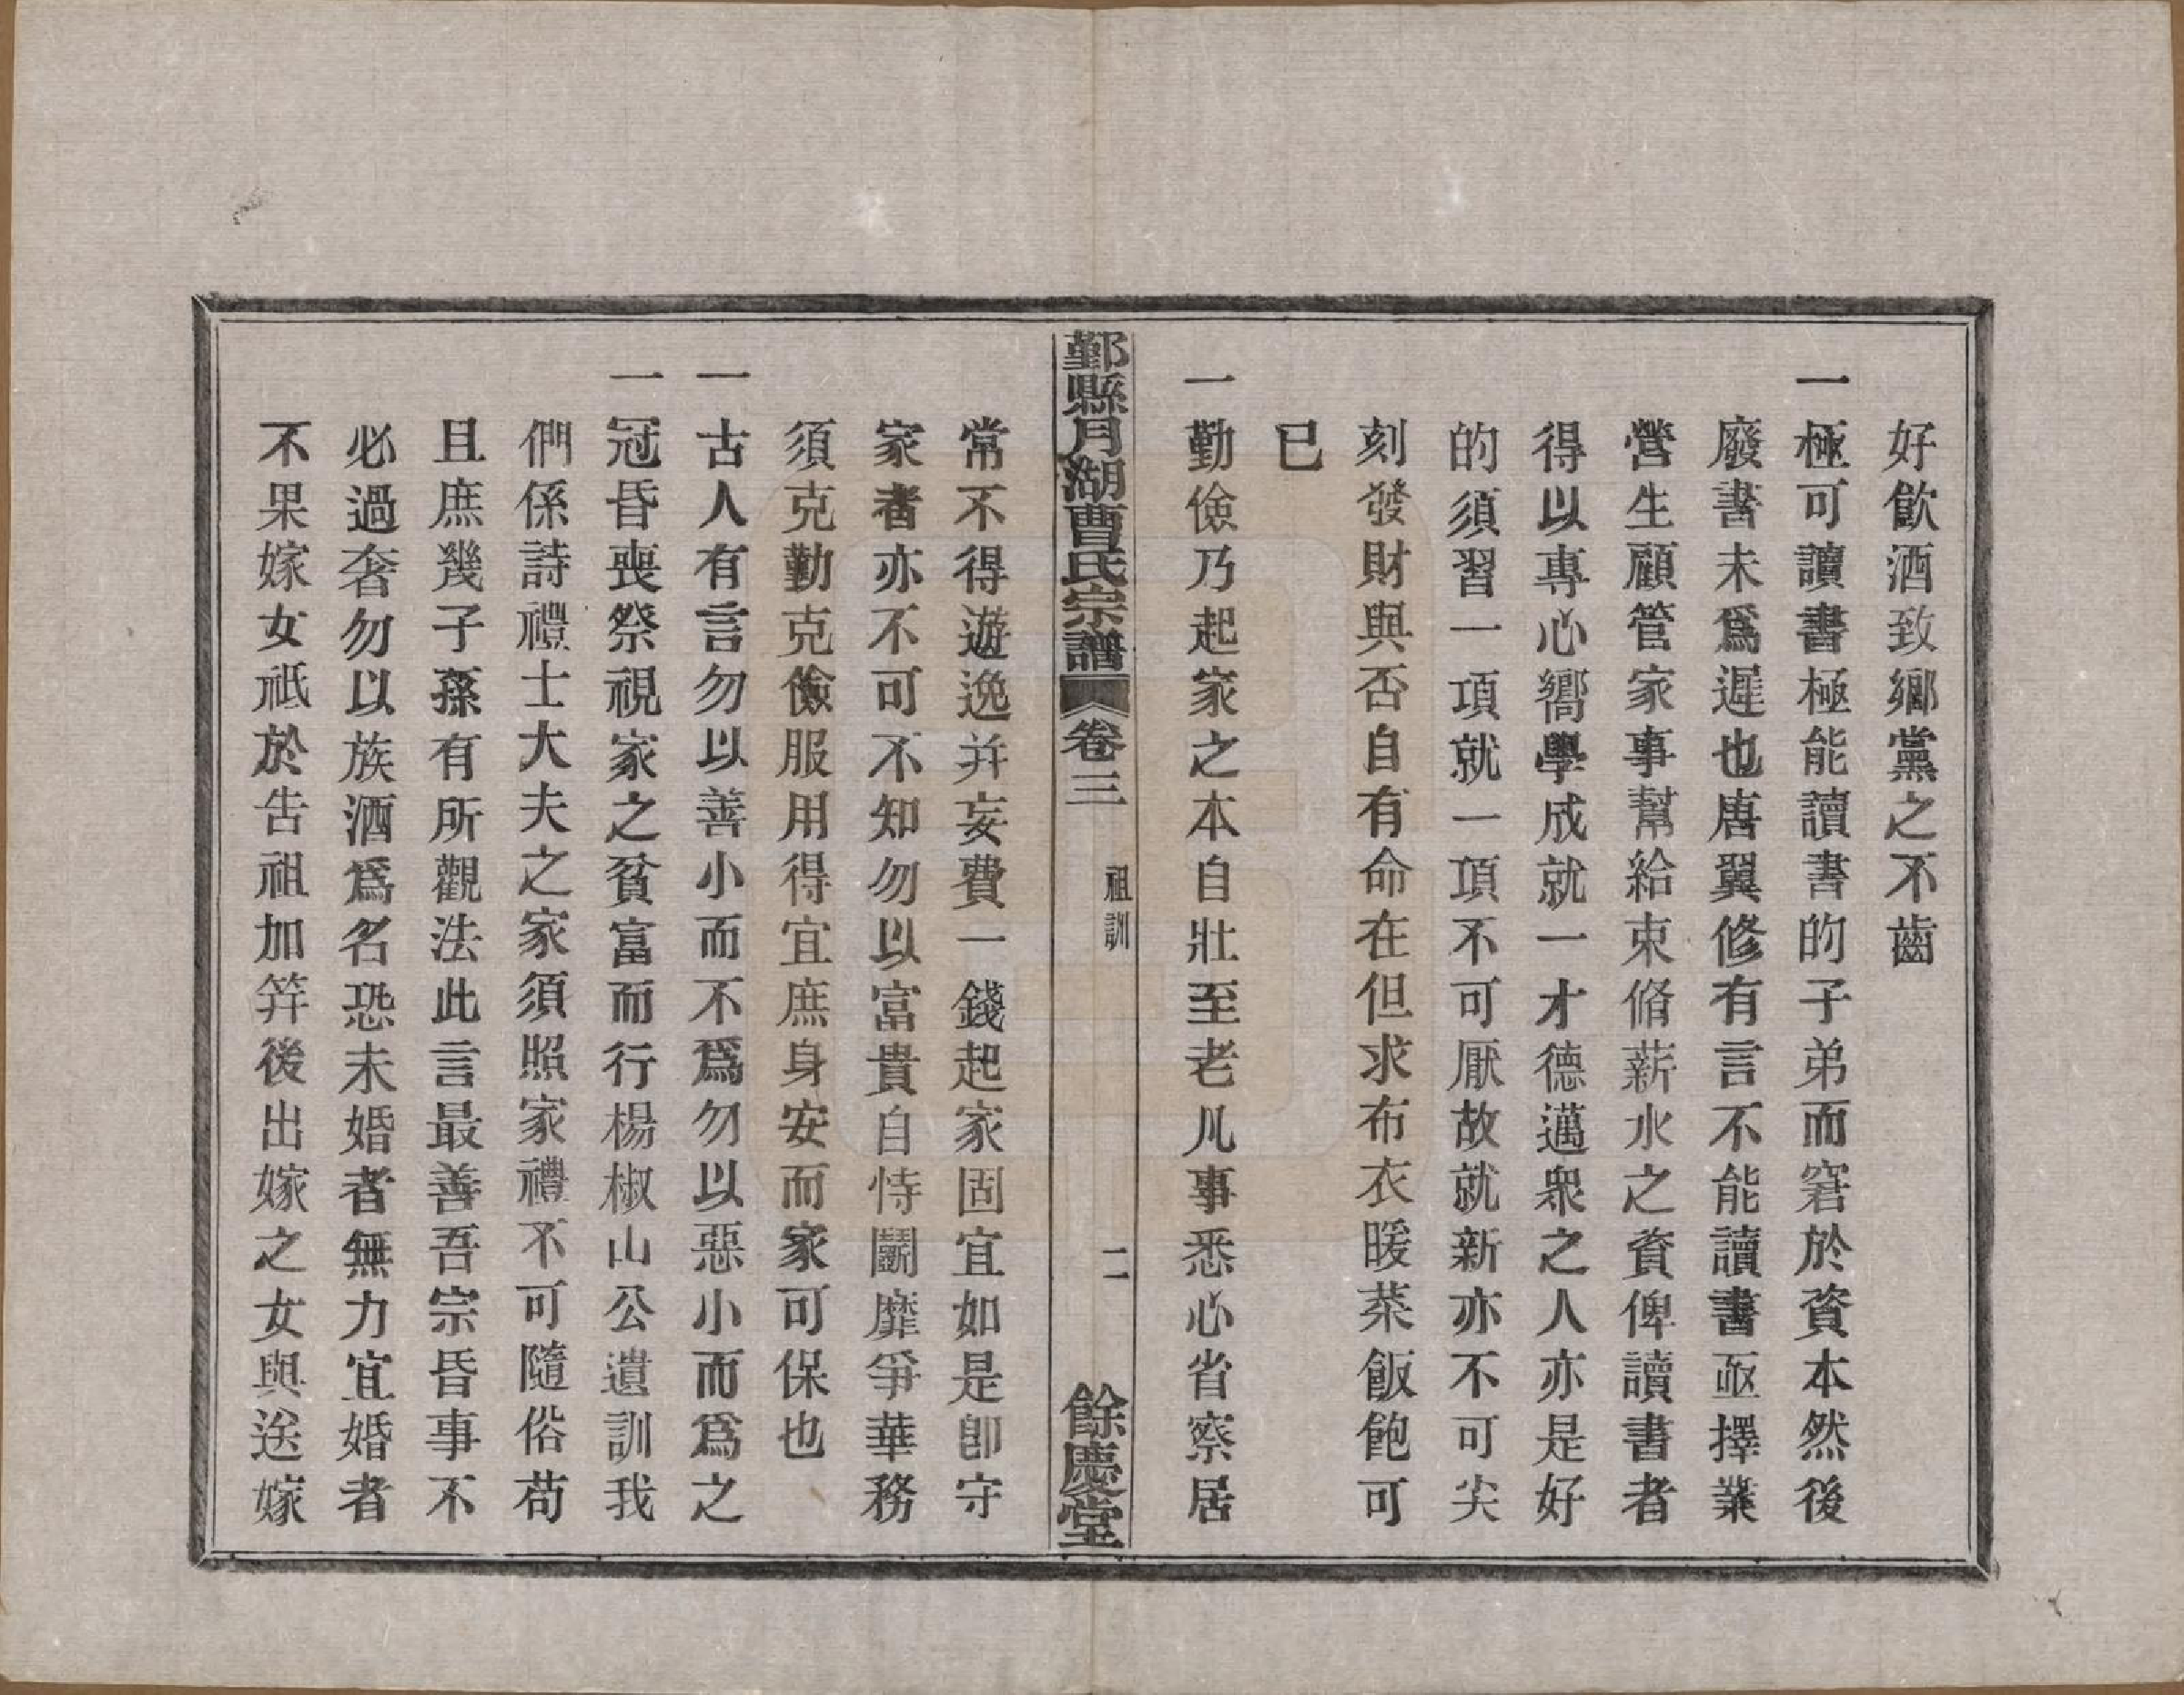 好飲酒致鄉黨之不齒
一極可讀書極能讀書的子弟而窘於資本然後
廢書未爲遲也唐翼修有言不能讀書亟擇業
營生顧管家事幫給束脩薪水之資俾讀書者
得以專心嚮學成就一才德邁衆之人亦是好
的須習一項就一項不可厭故就新亦不可尖
刻發財與否自有命在但求布衣暖菜飯飽可
已
一勤儉乃起家之本自壯至老凡事悉心省察居
鄞縣月湖曹氏宗譜 卷三 祖訓 二 餘慶堂
常不得遊逸并妄費一錢起家固宜如是卽守
家者亦不可不知勿以富貴自恃鬭靡爭華務
須克勤克儉服用得宜庶身安而家可保也
一古人有言勿以善小而不爲勿以惡小而爲之
一冠昏喪祭視家之貧富而行楊椒山公遺訓我
們係詩禮士大夫之家須照家禮不可隨俗苟
且庶幾子孫有所觀法此言最善吾宗昏事不
必過奢勿以族酒爲名恐未婚者無力宜婚者
不果嫁女祇於告祖加笄後出嫁之女與送嫁